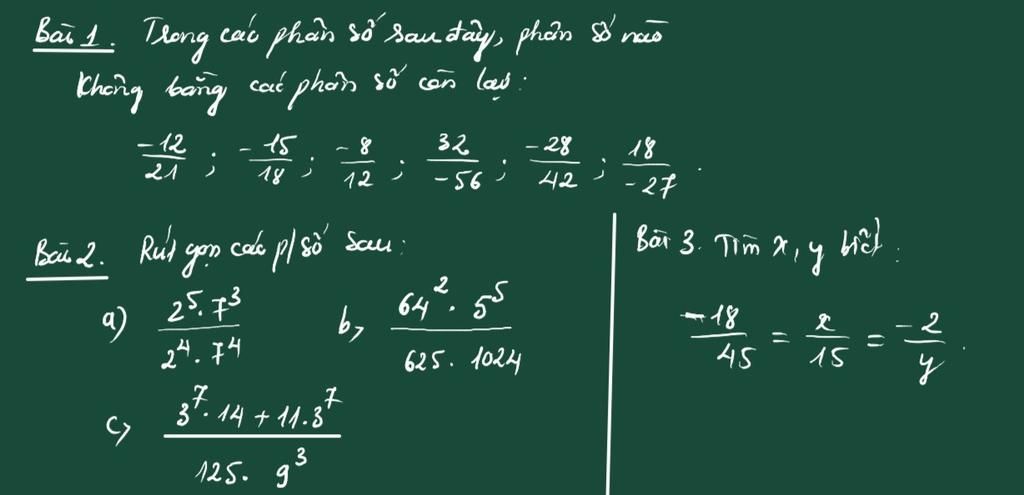 Bài 1. Trong các phân số sau đây, phân số nào
không bằng các phân số còn lại:
-12/21 ; -15/18 ; -8/12 ; 32/-56 ; -28/42 ; 18/-27.
Bài 2. Rút gọn các p/số sau:
a) 2⁵.7³/2⁴.7⁴
b, 64².5⁵/625.1024
c, 3⁷.14+11.3⁷/125.9³
Bài 3. Tìm x, y biết:
-18/45 = x/15 = -2/y.